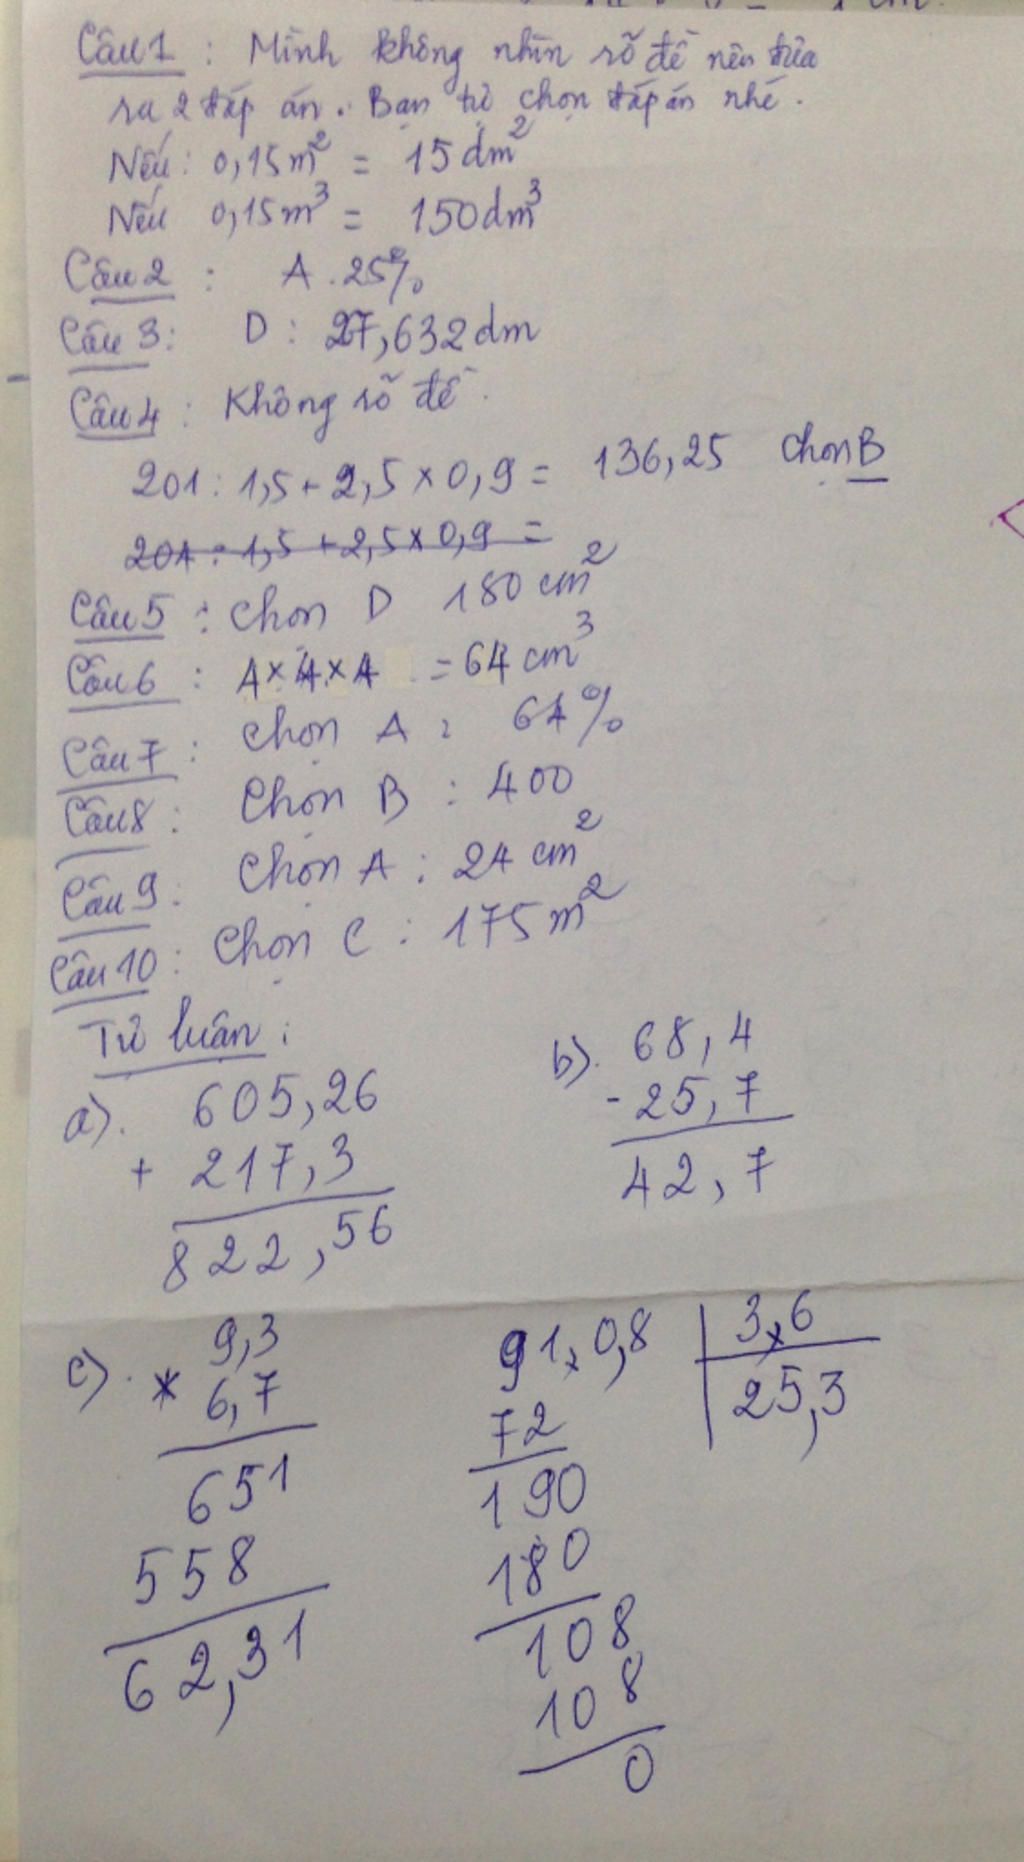 Câu 1 : Mình không nhìn rõ đề nên đưa
ra 2 đáp án. Bạn tự chọn đáp án nhé.
Nếu: 0,15m² = 15 dm²
Nếu 0,15m³ = 150dm³
Câu 2 : A. 25%
Câu 3: D: 27,632dm
Câu 4 : Không rõ đề.
201 : 1,5 + 2,5 × 0,9 = 136,25 Chọn B
201 : 1,5 + 2,5 × 0,9 =
Câu 5 : Chọn D 180 cm²
Câu 6 : 4 × 4 × 4 = 64 cm³
Câu 7 : Chọn A : 64%
Câu 8 : Chọn B : 400
Câu 9 : Chọn A : 24 cm²
Câu 10 : Chọn C : 175 m²
Tự luận :
a). 605,26
+ 217,3
822,56
b). 68,4
- 25,7
42,7
c). 9,3
× 6,7
651
558
62,31
91,0,8 3,6
72 25,3
190
180
108
108
0